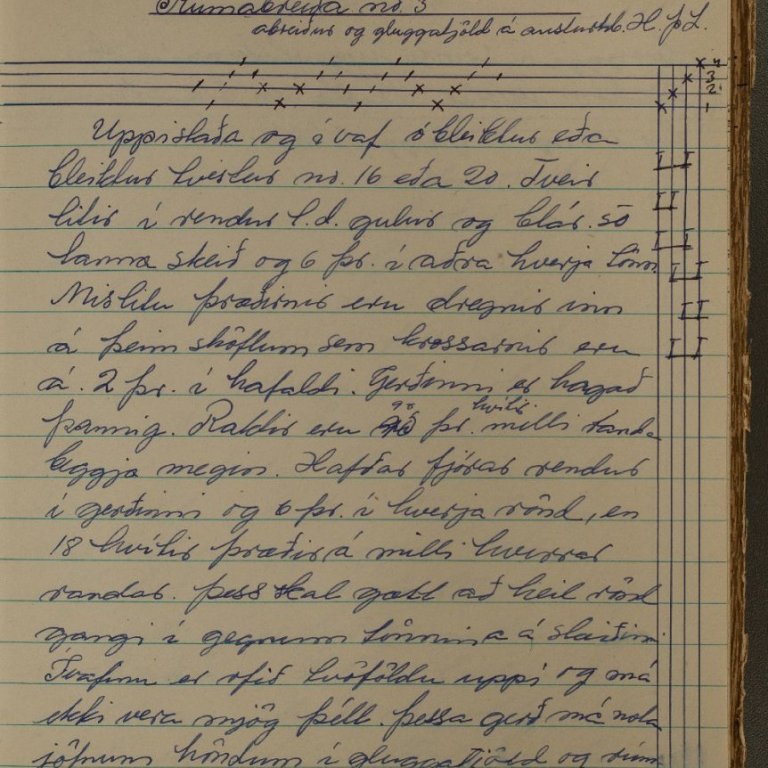 Rúmábreiða no. 3
ábreiður og gluggatjöld á austurstb. H. þ. L.
4
3
2
1
Uppistaða og ívaf óbleiktur eða
bleiktur tvistur no. 16 eða 20. Tveir
litir í rendur t.d. gulur og blár. 50
tanna skeið og 6 þr. í aðra hverja tönn.
Mislitu þræðirnir eru dregnir inn
á þeim sköftum sem krossarnir eru
á. 2 þr. í hafaldi. Gerðinni er hagað
þannig. Raktir eru 90 þr. hvítir milli randa
beggja megin. Hafðar fjórar rendur
í gerðinni og 6 þr. í hverja rönd, en
18 hvítir þræðir á milli hverrar
randar. Þess skal gætt að heil rönd
gangi í gegnum tönnina á skeiðinni.
Ívafinu er ofið tvöföldu uppi og má
ekki vera mjög þétt. Þessa gerð má nota
jöfnum höndum í gluggatjöld og rúm